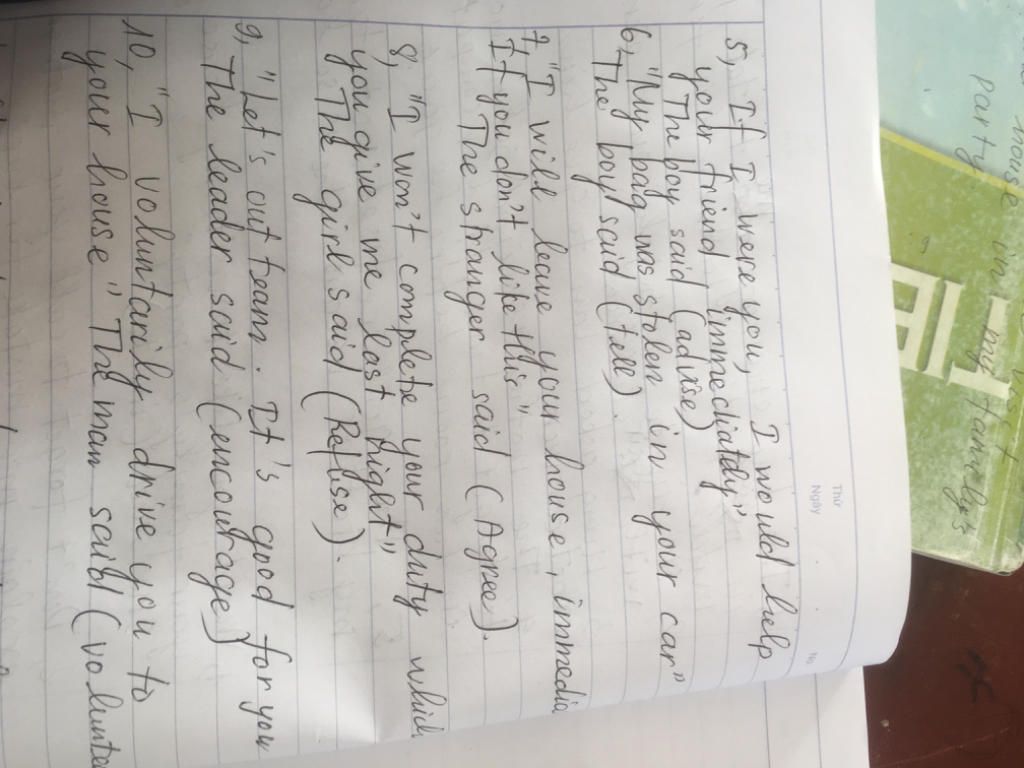 Thứ
Ngày
No
5, If I were you, I would help
your friend immediately"
(The boy said (advise)
6, "My bag was stolen in your car"
The boy said (tell).
7, "I will leave your house, immedia
If you don't like this"
The stranger said (Agree).
8, "I won't complete your duty which
you give me last night"
The girl said (Refuse).
9, "Let's out team. It's good for you
The leader said (encourage)
10, "I voluntarily drive you to
your house" The man said (volunte
house in
party. my family's
TIẾ